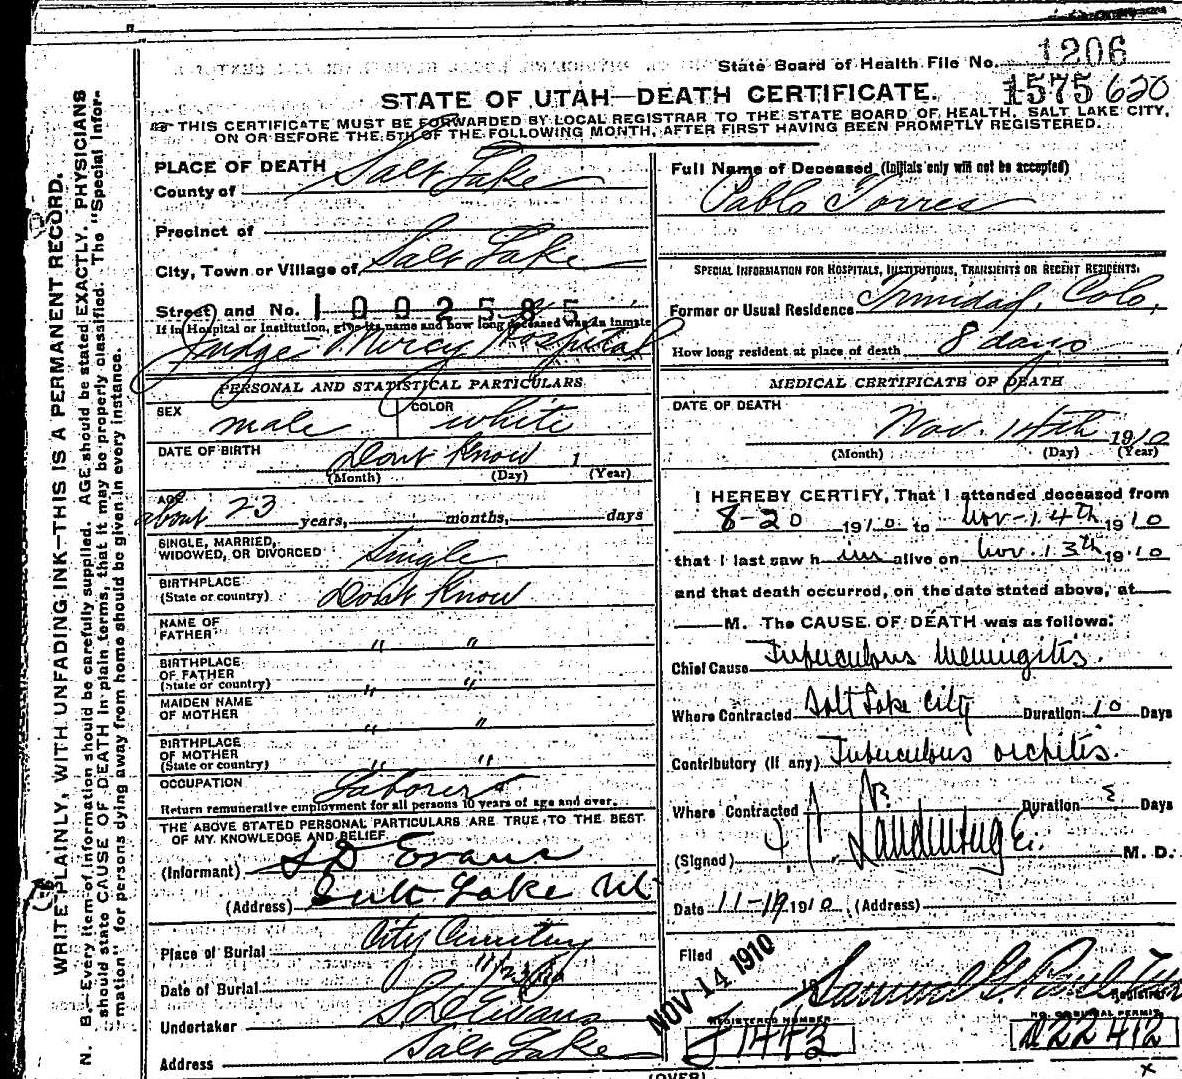 State Board of Health File No. 1206
1575 620
STATE OF UTAH—DEATH CERTIFICATE.
THIS CERTIFICATE MUST BE FORWARDED BY LOCAL REGISTRAR TO THE STATE BOARD OF HEALTH, SALT LAKE CITY,
ON OR BEFORE THE 5TH OF THE FOLLOWING MONTH, AFTER FIRST HAVING BEEN PROMPTLY REGISTERED.
WRITE PLAINLY, WITH UNFADING INK—THIS IS A PERMANENT RECORD.
N. B.—Every item of information should be carefully supplied. AGE should be stated EXACTLY. PHYSICIANS
should state CAUSE OF DEATH in plain terms, that it may be properly classified. The "Special Infor-
mation" for persons dying away from home should be given in every instance.
PLACE OF DEATH
County of Salt Lake
Precinct of
City, Town or Village of Salt Lake
Street and No. 1002585
If in Hospital or Institution, give its name and how long deceased was an inmate
Judge Mercy Hospital
PERSONAL AND STATISTICAL PARTICULARS
SEX male COLOR white
DATE OF BIRTH Dont Know 1
(Month) (Day) (Year)
AGE about 23 years, months, days
SINGLE, MARRIED,
WIDOWED, OR DIVORCED Single
BIRTHPLACE
(State or country) Dont Know
NAME OF
FATHER " "
BIRTHPLACE
OF FATHER
(State or country) " "
MAIDEN NAME
OF MOTHER " "
BIRTHPLACE
OF MOTHER
(State or country) " "
OCCUPATION Laborer
Return remunerative employment for all persons 10 years of age and over.
THE ABOVE STATED PERSONAL PARTICULARS ARE TRUE TO THE BEST
OF MY KNOWLEDGE AND BELIEF.
(Informant) S D Evans
(Address) Salt Lake Ut
Place of Burial City Cemetery
Date of Burial 11/23/10
Undertaker S. D. Evans
Address Salt Lake
Full Name of Deceased (Initials only will not be accepted)
Pablo Torres
SPECIAL INFORMATION FOR HOSPITALS, INSTITUTIONS, TRANSIENTS OR RECENT RESIDENTS.
Former or Usual Residence Trinidad, Colo.
How long resident at place of death 8 days
MEDICAL CERTIFICATE OF DEATH
DATE OF DEATH
Nov. 14th 1910
(Month) (Day) (Year)
I HEREBY CERTIFY, That I attended deceased from
8-20 1910 to Nov-14th 1910
that I last saw him alive on Nov. 13th 1910
and that death occurred, on the date stated above, at
M. The CAUSE OF DEATH was as follows:
Chief Cause Tuberculous Meningitis.
Where Contracted Salt Lake City Duration 10 Days
Contributory (If any) Tuberculous orchitis.
Where Contracted Duration Days
(Signed) M. D.
Date 11-19 1910 (Address)
Filed NOV 14 1910
Samuel G. Paul
Registrar
REGISTERED NUMBER
J1443
NO. OF BURIAL PERMIT
A22412
(OVER)